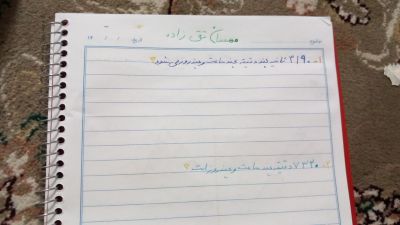 موضوع: تاریخ: / /
مهسان تقی زاده
۱- ۲۱۹۰ ثانیه چند دقیقه چند ساعت و چند روز می شود؟
۲- ۷۳۲۰ دقیقه چند ساعت و چند روز است؟